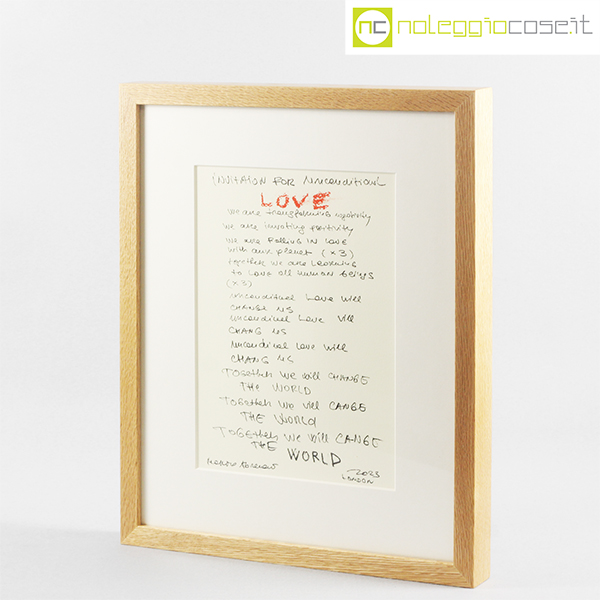 nc noleggiocose.it
INVITAION FOR UNconditionL
LOVE
we are transforming negativity
we are inviting positivity
we are falling IN LOVE
with our planet (x3)
together we are LEARNING
to Love all HUMAN beings
(x3)
unconditinal Love will
CHANGE US
unconditinal Love will
CHANG US
unconditinal Love will
CHANG US
TOGETHER WE will CHANGE
THE WORLD
TOGETHER WE will CANGE
THE WORLD
TOGETHER WE will CANGE
THE WORLD
2023
LONDON